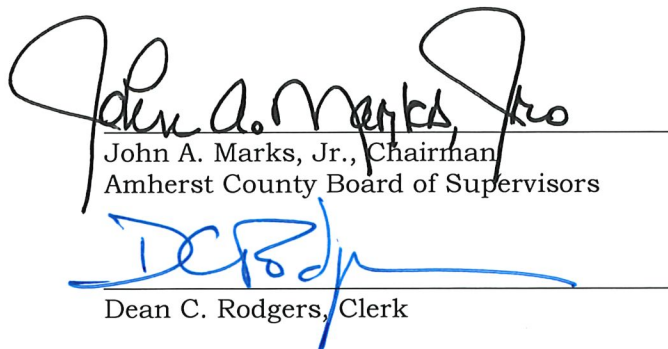 John A. Marks, Jr.
John A. Marks, Jr., Chairman
Amherst County Board of Supervisors
DCRodgers
Dean C. Rodgers, Clerk